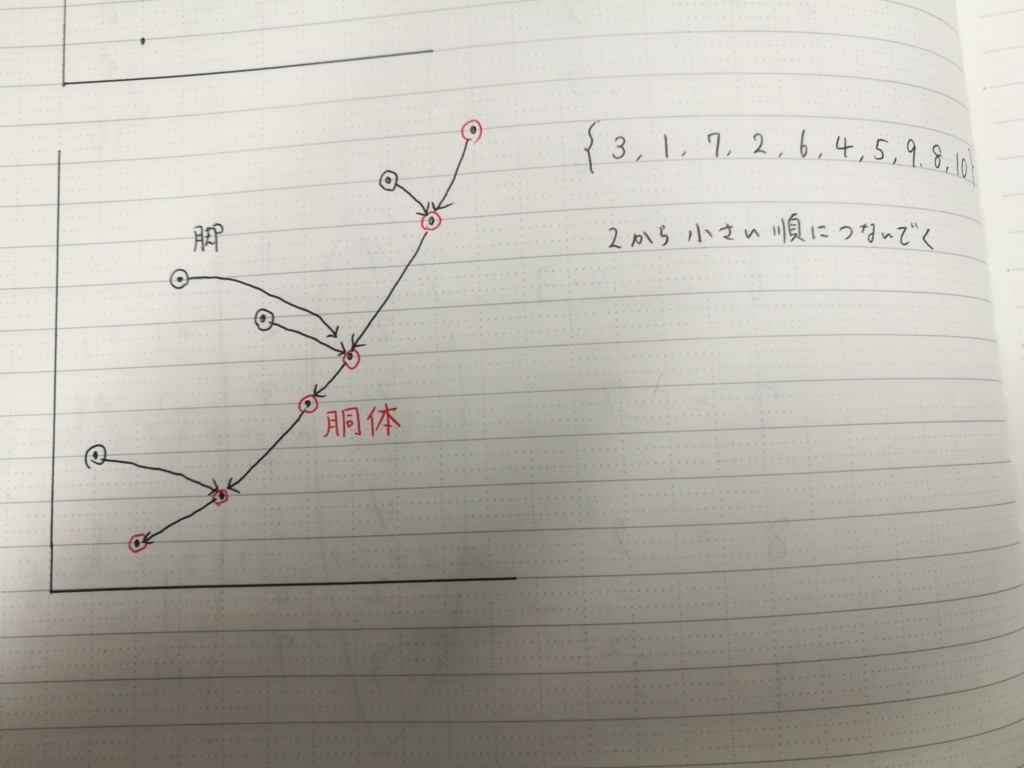 { 3, 1, 7, 2, 6, 4, 5, 9, 8, 10}
2から小さい順につないでく
脚
胴体